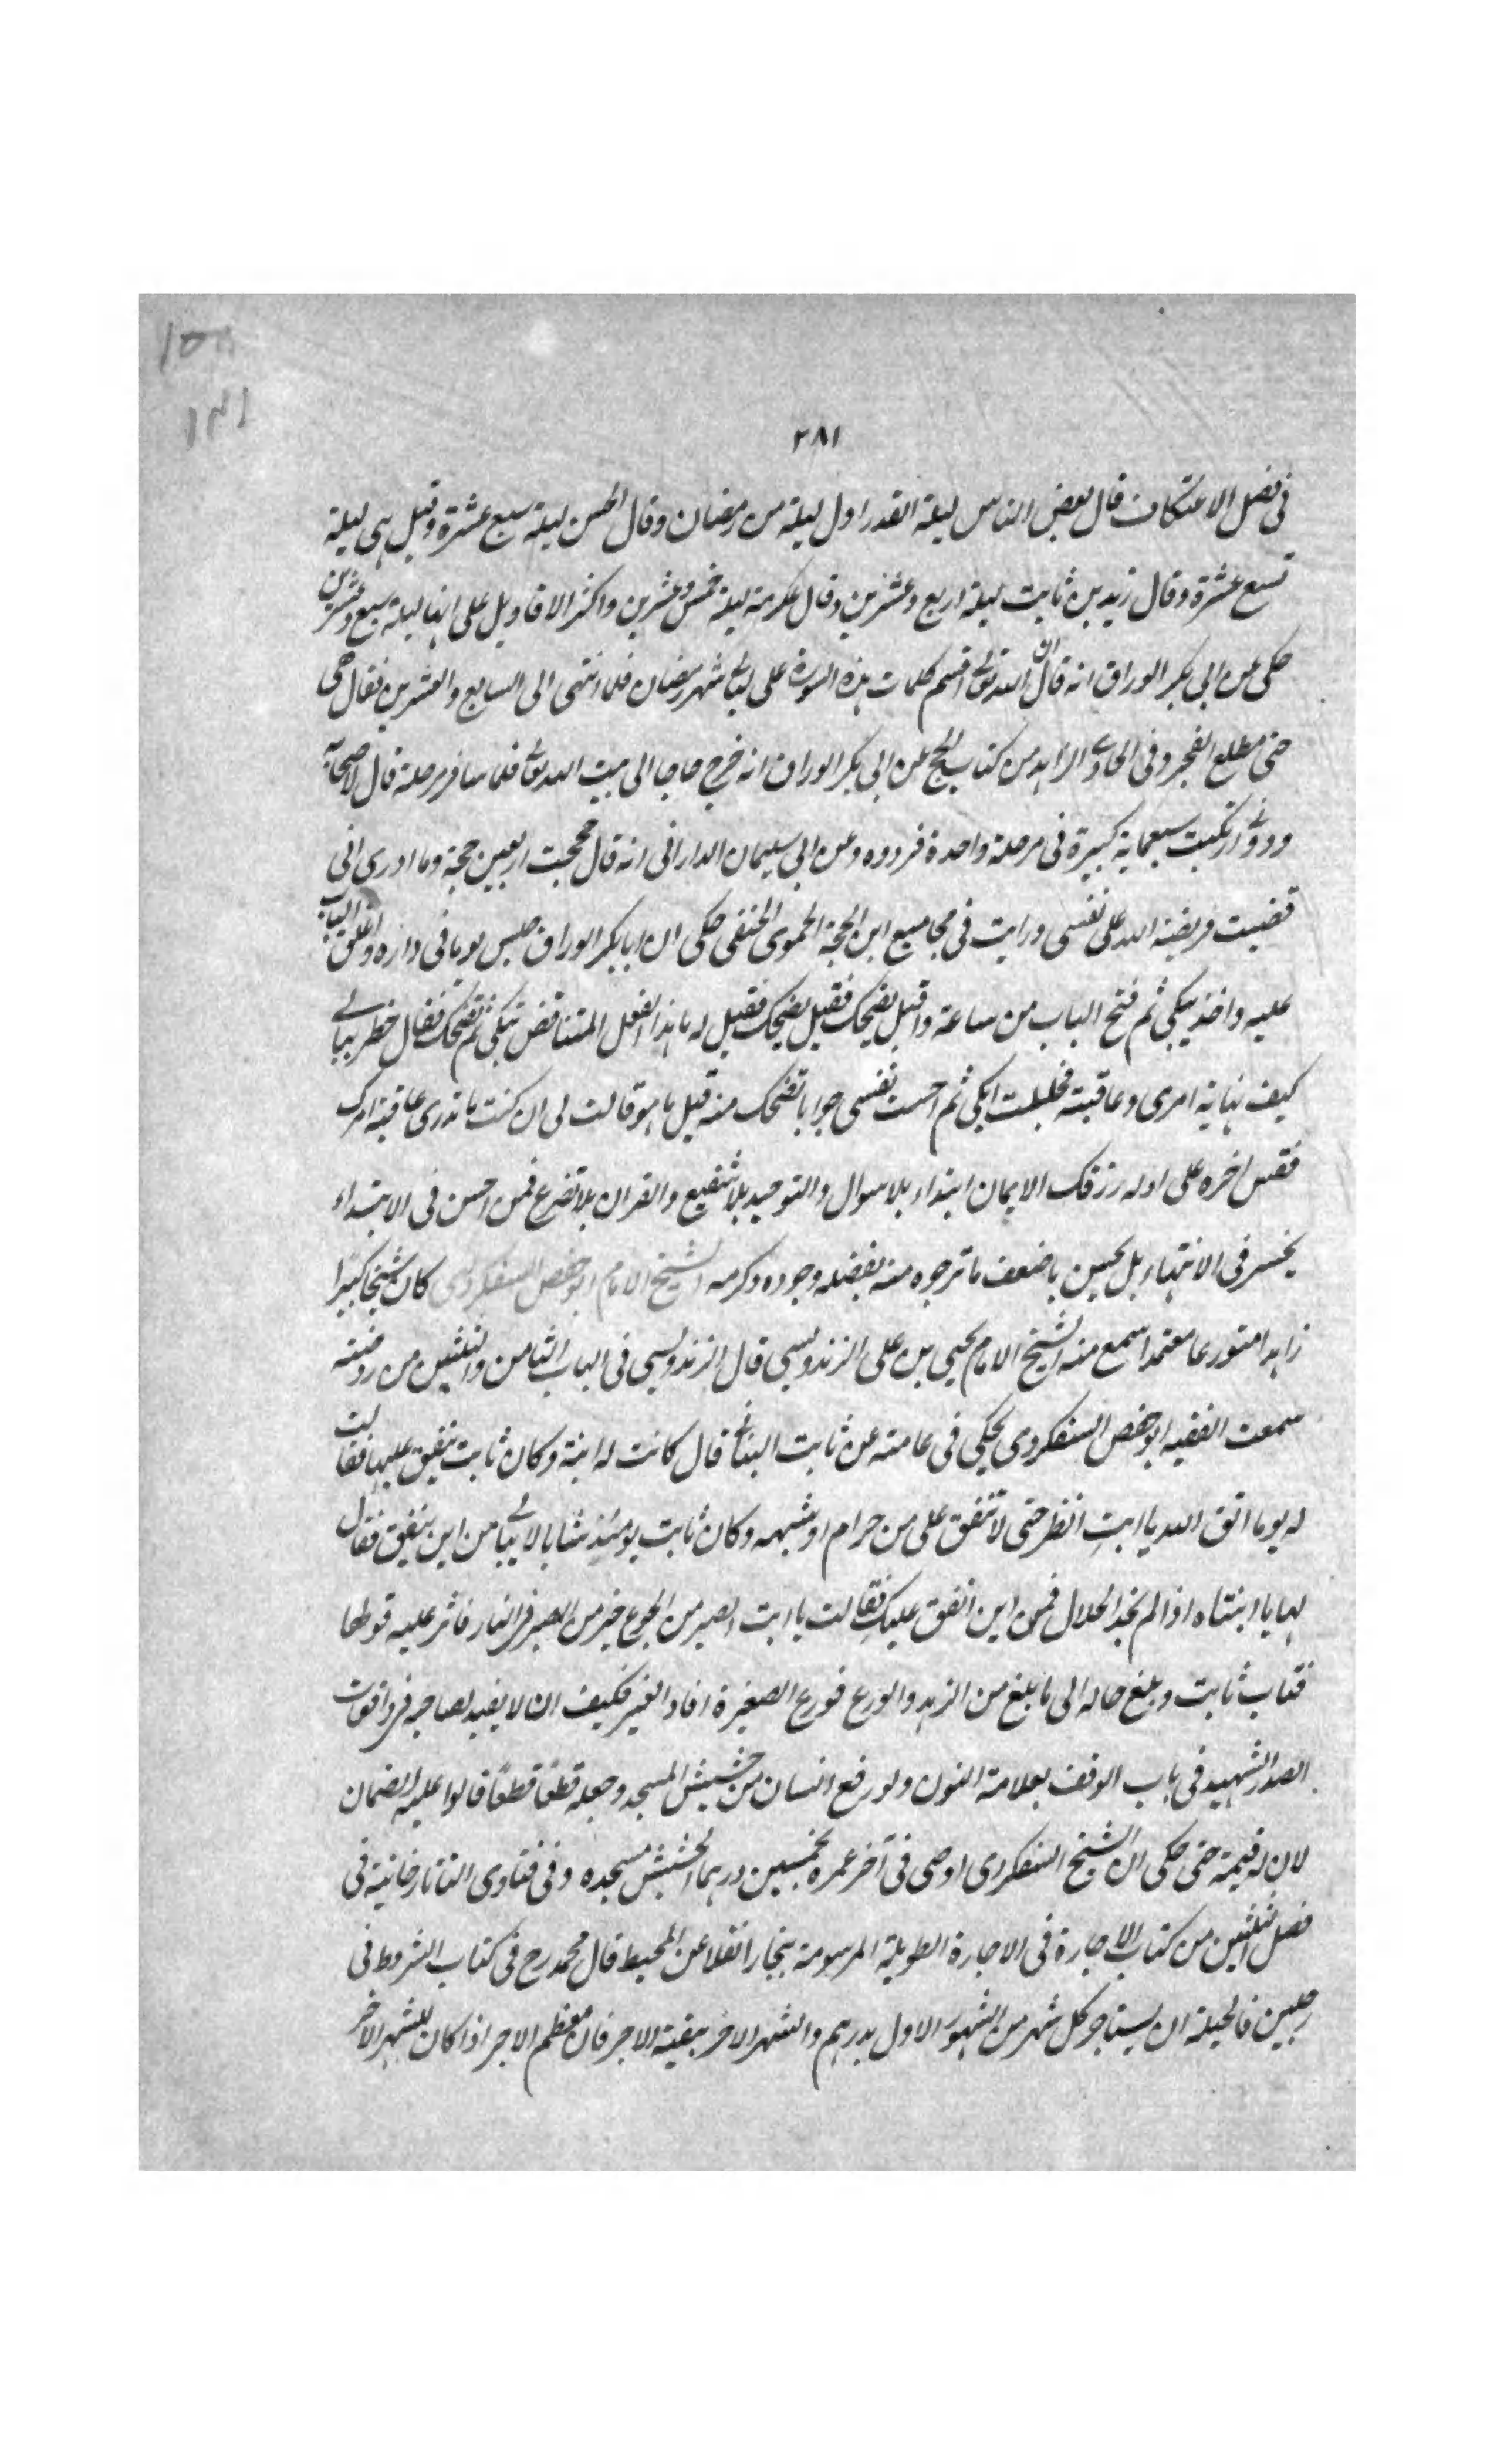 ١٥٨
١٨١
٢٨١
فى فصل الاعتكاف قال بعض الناس ليلة القدر اول ليلة من رمضان وقال الحسن ليلة سبع عشرة وقيل هى ليلة
تسع عشرة وقال زيد بن ثابت ليلة اربع وعشرين وقال عكرمة ليلة خمس وعشرين واكثر الاقاويل على انها ليلة سبع وعشرين
حكى عن ابى بكر الوراق انه قال ان الله تعالى قسم كلمات هذه السورة على ليالى شهر رمضان فلما انتهى الى السابع والعشرين فقال هى
حتى مطلع الفجر وفى الحاوى الزاهد من كتاب الحج عن ابى بكر الوراق انه خرج حاجا الى بيت الله تعالى فلما سافر مرحلة قال لاصحابه
ردونى ارتكبت سبعماية كبيرة فى مرحلة واحدة فردوه وعن ابى سليمان الدارانى انه قال حججت اربعين حجة وما ادرى انى
قضيت فريضة الله على نفسى ورايت فى مجاميع ابن الحجة الحموى الحنفى حكى ان ابا بكر الوراق جلس يوما فى داره واغلق الباب
عليه واخذ يبكى ثم فتح الباب من ساعة واقبل يضحك فقيل يضحك فقيل له ما هذا الفعل المتناقض تبكى ثم تضحك فقال خطر ببالى
كيف نهاية امرى وعاقبته فجلست ابكى ثم احست نفسى جوابا تضحك منه قيل ما هو قالت لى ان كنت ما تدرى عاقبة امرك
فقس اخره على اوله رزقك الايمان ابتداء بلا سوال والتوحيد بلا شفيع والقران بلا تضرع فمن احسن فى الابتداء
يخسر فى الانتهاء بل يحسن باضعف ما ترجوه منه بفضله وجوده وكرمه الشيخ الامام ابو حفص السفكردى كان شيخا كبيرا
زاهدا متورعا معتمدا سمع منه الشيخ الامام يحيى بن على الزندويسى قال الزندويسى فى الباب الثامن والثلثين من روضته
سمعت الفقيه ابو حفص السفكردى يحكى فى عامته عن ثابت البنانى قال كانت له ابنة وكان ثابت ينفق عليها فقالت
له يوما اتق الله يا ابت انظر حتى لا تنفق على من حرام او شبهه وكان ثابت يومئذ شابا لا يبالى من اين ينفق فقال
لها يا ابنتاه اذا لم نجد الحلال فمن اين انفق عليك فقالت يا ابت الصبر من الجوع خير من الصبر فى النار فاثر عليه قولها
فتاب ثابت وبلغ حاله الى ما بلغ من الزهد والورع فورع الصغيرة افاد الغير فكيف ان لا يفيد لصاحبه فى واقعات
الصدر الشهيد فى باب الوقف بعلامة النون ولو رفع انسان من حشيش المسجد وجعله قطعًا قطعًا قالوا عليه الضمان
لان له قيمة حتى حكى ان الشيخ السفكردى اوصى فى آخر عمره بخمسين درهما لحشيش مسجده وفى فتاوى التاتارخانية فى
فصل الثلثين من كتاب الاجارة فى الاجارة الطويلة المرسومة ببخارا نقلا عن المحيط قال محمد رح فى كتاب الشروط فى
رجلين فالحيلة ان يستاجر كل شهر من الشهور الاول بدرهم والشهر الاخر ببقية الاجر فان معظم الاجر اذا كان للشهر الاخر